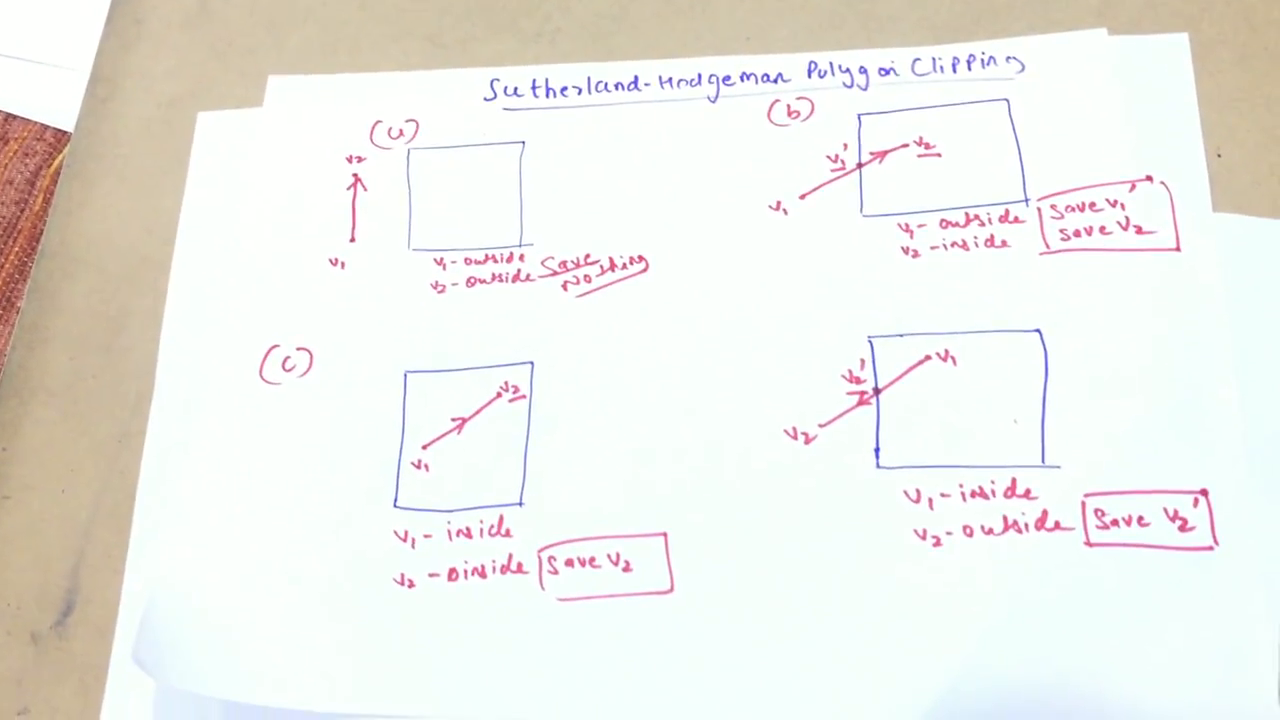 Sutherland-Hodgeman Polygon Clipping
(a)
v2
v1
v1-outside
v2-outside
Save
Nothing
(b)
v1'
v2
v1
v1- outside
v2-inside
Save v1'
Save v2
(c)
v2
v1
v1-inside
v2-inside
Save v2
v1
v2'
v2
v1-inside
v2-outside
Save v2'